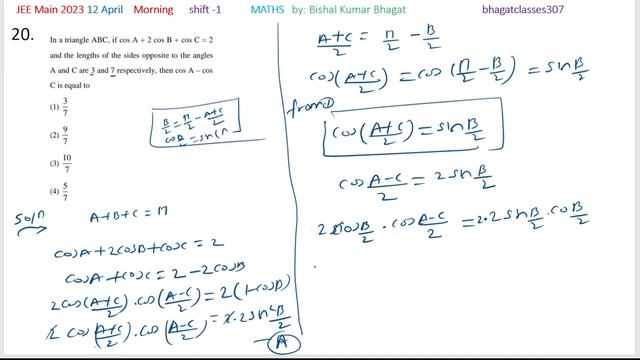 JEE Main 2023 12 April Morning shift -1 MATHS by: Bishal Kumar Bhagat bhagatclasses307
20. In a triangle ABC, if cos A + 2 cos B + cos C = 2
and the lengths of the sides opposite to the angles
A and C are 3 and 7 respectively, then cos A – cos
C is equal to
(1) 3/7
(2) 9/7
(3) 10/7
(4) 5/7
B/2 = π/2 - A+C/2
Soln
A+B+C = π
cosA + 2cosB + cosC = 2
cosA + cosC = 2 - 2cosB
2cos(A+C/2) . cos(A-C/2) = 2(1-cosB)
2 cos(A+C/2) . cos(A-C/2) = 2. 2 sin²B/2
A
A+C/2 = π/2 - B/2
cos(A+C/2) = cos(π/2 - B/2) = sin B/2
from ①
cos(A+C/2) = sin B/2
cos A-C/2 = 2 sin B/2
2 cos B/2 . cos A-C/2 = 2.2 sin B/2 . cos B/2